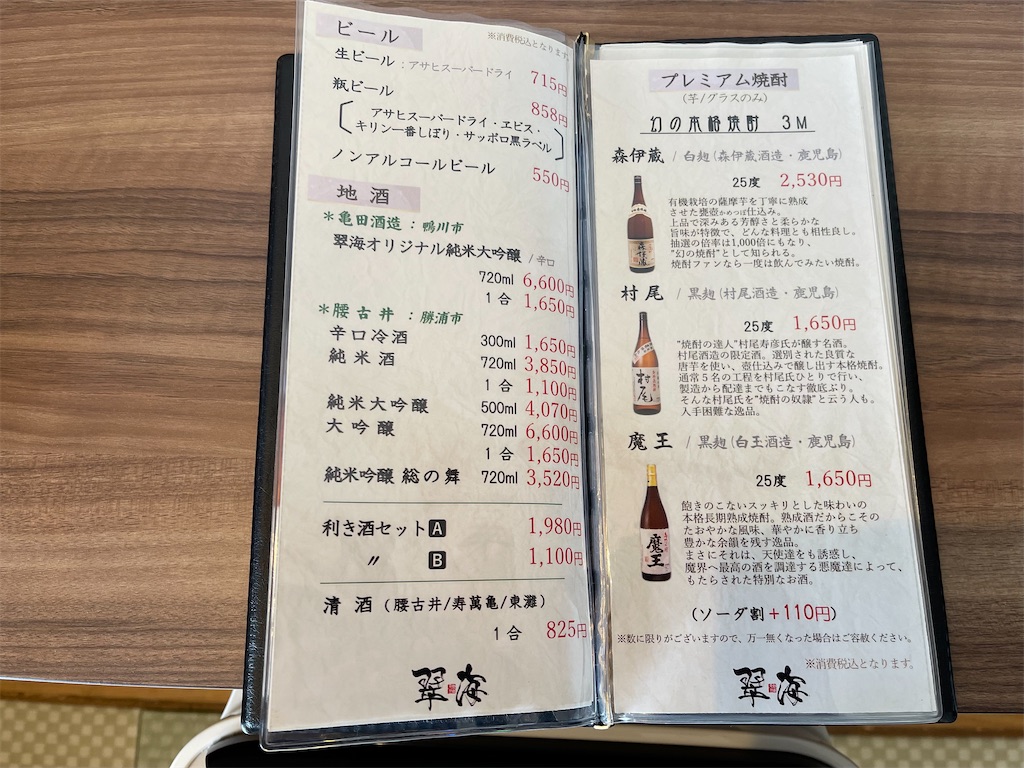 ビール
※消費税込となります。
生ビール：アサヒスーパードライ 715円
瓶ビール 858円
アサヒスーパードライ・ヱビス・
キリン一番しぼり・サッポロ黒ラベル
ノンアルコールビール 550円
地酒
＊亀田酒造：鴨川市
翠海オリジナル純米大吟醸 / 辛口
720ml 6,600円
1合 1,650円
＊腰古井：勝浦市
辛口冷酒 300ml 1,650円
純米酒 720ml 3,850円
1合 1,100円
純米大吟醸 500ml 4,070円
大吟醸 720ml 6,600円
1合 1,650円
純米吟醸 総の舞 720ml 3,520円
利き酒セットA 1,980円
〃 B 1,100円
清酒（腰古井/寿萬亀/東灘）
1合 825円
翠海
プレミアム焼酎
（芋/グラスのみ）
幻の本格焼酎 3M
森伊蔵 / 白麹（森伊蔵酒造・鹿児島）
25度 2,530円
有機栽培の薩摩芋を丁寧に熟成
させた甕壺かめつぼ仕込み。
上品で深みある芳醇さと柔らかな
旨味が特徴で、どんな料理とも相性良し。
抽選の倍率は1,000倍にもなり、
"幻の焼酎"として知られる。
焼酎ファンなら一度は飲んでみたい焼酎。
森伊蔵
村尾 / 黒麹（村尾酒造・鹿児島）
25度 1,650円
"焼酎の達人"村尾寿彦氏が醸す名酒。
村尾酒造の限定酒。選別された良質な
唐芋を使い、壺仕込みで醸し出す本格焼酎。
通常５名の工程を村尾氏ひとりで行い、
製造から配達までもこなす徹底ぶり。
そんな村尾氏を"焼酎の奴隷"と云う人も。
入手困難な逸品。
村尾
魔王 / 黒麹（白玉酒造・鹿児島）
25度 1,650円
飽きのこないスッキリとした味わいの
本格長期熟成焼酎。熟成酒だからこその
たおやかな風味、華やかに香り立ち
豊かな余韻を残す逸品。
まさにそれは、天使達をも誘惑し、
魔界へ最高の酒を調達する悪魔達によって、
もたらされた特別なお酒。
魔王
（ソーダ割＋110円）
※数に限りがございますので、万一無くなった場合はご容赦ください。
※消費税込となります。
翠海